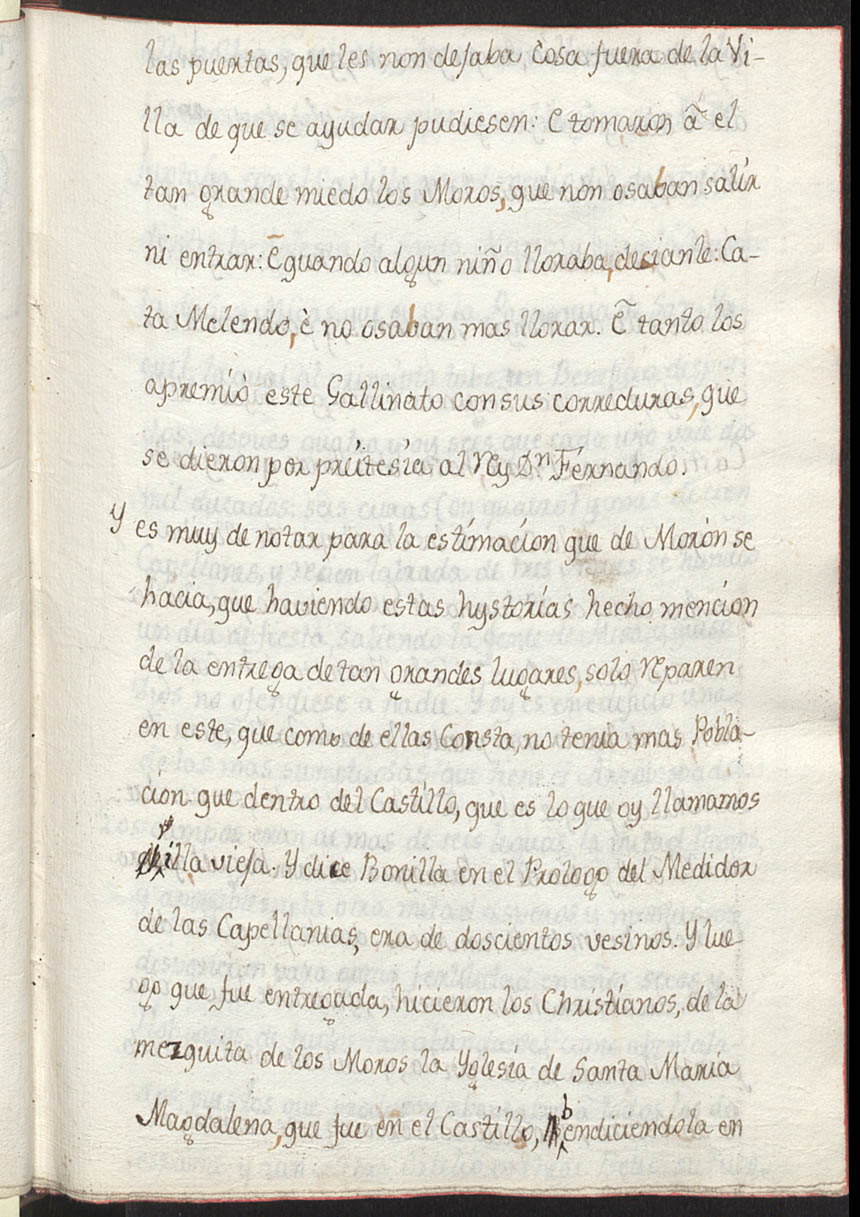 las puertas, que les non dejaba cosa fuera de la Vi-
lla de que se ayudar pudiesen: E tomaron ã el
tan grande miedo los Moros, que non osaban salir
ni entrar: E quando algun niño lloraba, decianle: Ca-
ta Melendo, è no osaban mas llorar. E tanto los
apremiò este Gallinato con sus correduras, que
se dieron por pleitesia al Rey Dn Fernando.
Y es muy de notar para la estimacion que de Moròn se
hacia, que haviendo estas hystorias hecho mencion
de la entrega de tan grandes lugares, solo reparen
en este, que como de ellas Consta, no tenia mas Pobla-
cion que dentro del Castillo, que es lo que oy llamamos
villa vieja. Y dice Bonilla en el Prologo del Medidor
de las Capellanias, era de doscientos vesinos. Y lue-
go que fue entregada, hicieron los Christianos, de la
mezquita de los Moros la Yglesia de Santa Maria
Magdalena, que fue en el Castillo, bendiciendola en